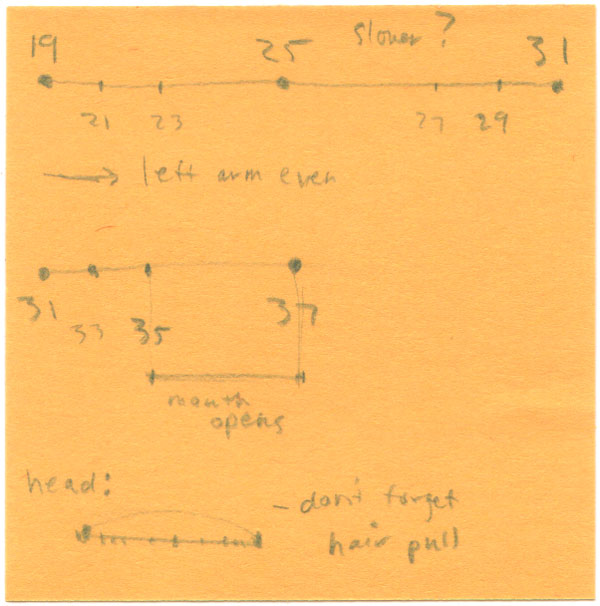 slower?
19 25 31
21 23 27 29
left arm even
31 33 35 37
mouth
opens
head:
- don't forget
hair pull